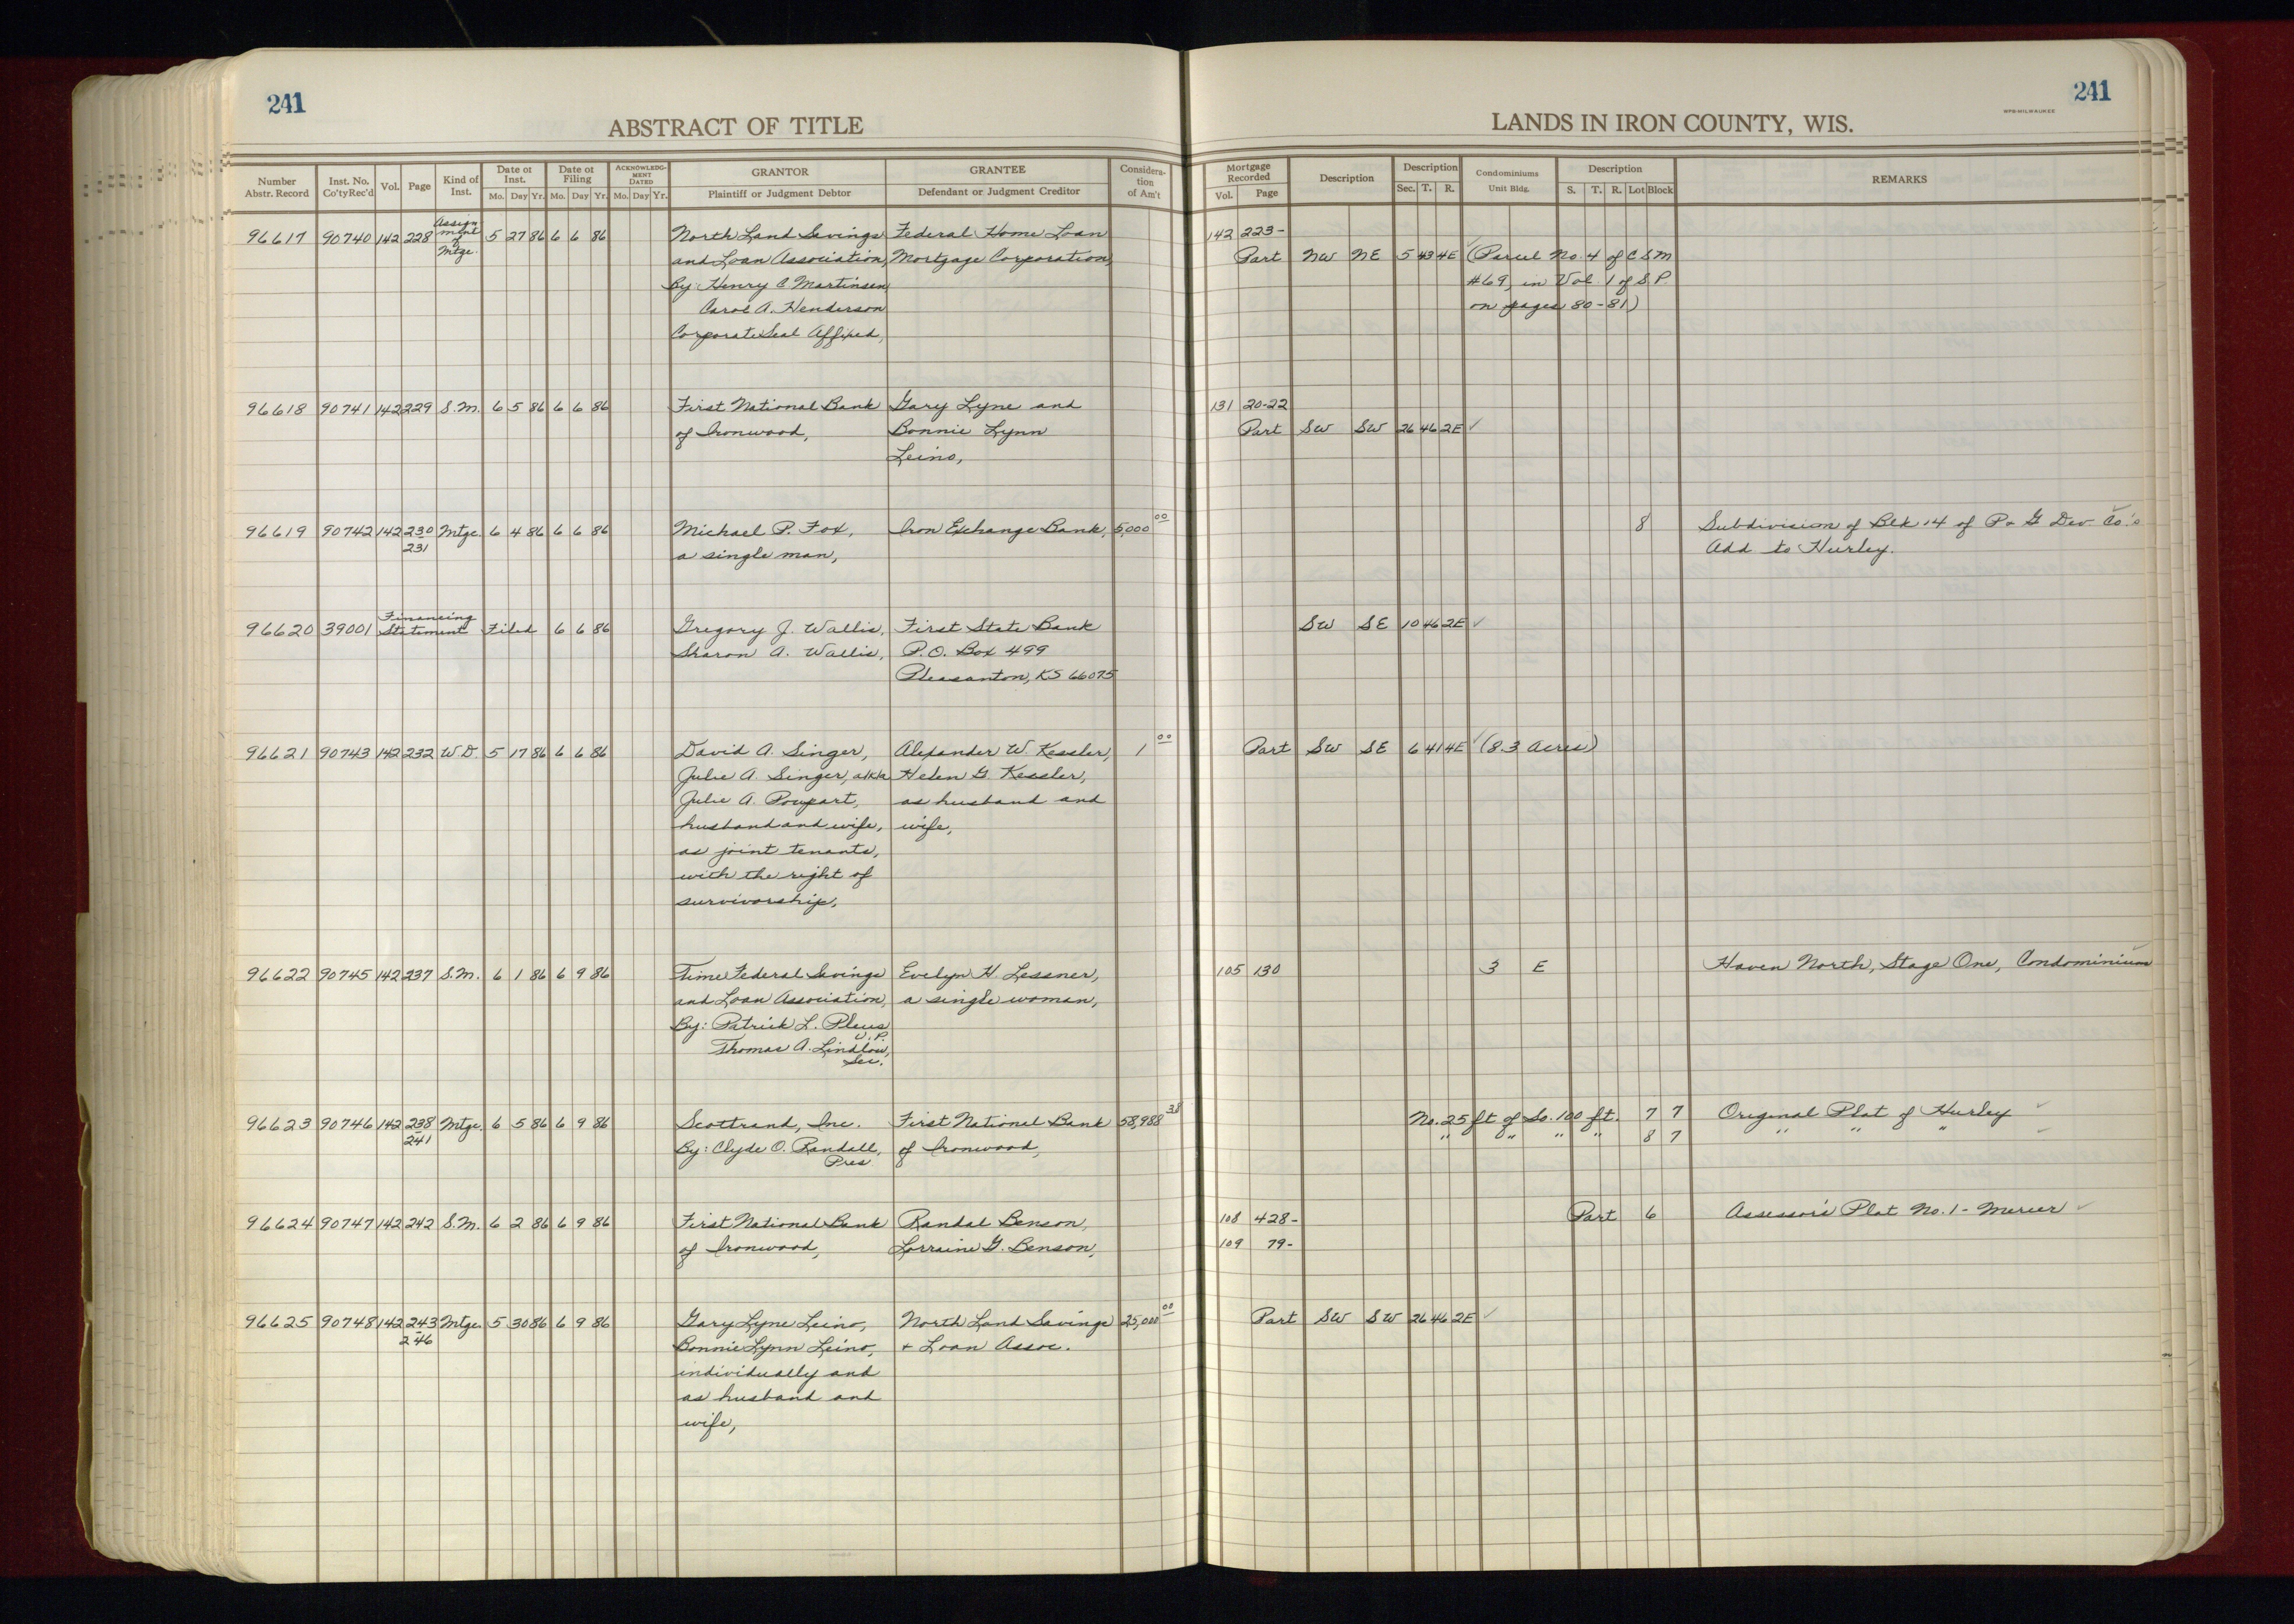 241
ABSTRACT OF TITLE
Number Abstr. Record
Inst. No. Co'ty Rec'd
Vol.
Page
Kind of Inst.
Date of Inst.
Mo. Day Yr.
Date of Filing
Mo. Day Yr.
ACKNOWLEDGMENT DATED
Mo. Day Yr.
GRANTOR
Plaintiff or Judgment Debtor
GRANTEE
Defendant or Judgment Creditor
Consideration of Am't
241
WPB-MILWAUKEE
LANDS IN IRON COUNTY, WIS.
Mortgage Recorded
Vol. Page
Description
Description
Sec. T. R.
Condominiums
Unit Bldg.
Description
S. T. R. Lot Block
REMARKS
96617 90740 142 228 Assignment of Mtge. 5 27 86 6 6 86 North Land Savings Federal Home Loan 142 223-
and Loan Association, Mortgage Corporation, Part NW NE 5 43 4E (Parcel No. 4 of CSM
By: Henry C Martinsen #69, in Vol 1 of S.P.
Carol A. Henderson on pages 80-81)
Corporate Seal Affixed,
96618 90741 142 229 S.M. 6 5 86 6 6 86 First National Bank Gary Lyne and 131 20-22
of Ironwood, Bonnie Lynn Part SW SW 26 46 2E ✓
Leino,
96619 90742 142 230 Mtge. 6 4 86 6 6 86 Michael P. Fox, Iron Exchange Bank, 5,000 00 8 Subdivision of Blk 14 of P & G Dev Co.'s
231 a single man, Add to Hurley.
96620 39001 Financing Statement Filed 6 6 86 Gregory J. Wallis, First State Bank SW SE 10 46 2E ✓
Sharon A. Wallis, P.O. Box 499
Pleasanton, KS 66075
96621 90743 142 232 W.D. 5 17 86 6 6 86 David A. Singer, Alexander W. Kessler, 1 00 Part SW SE 6 41 4E ✓ (8.3 Acres)
Julie A. Singer, a/k/a Helen G Kessler,
Julie A. Poupart, as husband and
husband and wife, wife,
as joint tenants,
with the right of
survivorship,
96622 90745 142 237 S.M. 6 1 86 6 9 86 Time Federal Savings Evelyn H. Lessner, 105 130 3 E Haven North, Stage One, Condominium
and Loan Association, a single woman,
By: Patrick L. Pleus
V.P.
Thomas A. Lindlow,
Sec.
96623 90746 142 238 Mtge. 6 5 86 6 9 86 Scottrand, Inc. First National Bank 58,988 38 No. 25 ft of So. 100 ft. 7 7 Original Plat of Hurley ✓
241 By: Clyde O. Randall, of Ironwood, " " " " 8 7 " " " ✓
Pres
96624 90747 142 242 S.M. 6 2 86 6 9 86 First National Bank Randal Benson, 108 428- Part 6 Assessor's Plat No. 1 - Mercer ✓
of Ironwood, Lorraine G. Benson, 109 79-
96625 90748 142 243 Mtge. 5 30 86 6 9 86 Gary Lyne Leino, North Land Savings 25,000 00 Part SW SW 26 46 2E ✓
246 Bonnie Lynn Leino, + Loan Assoc.
individually and
as husband and
wife,